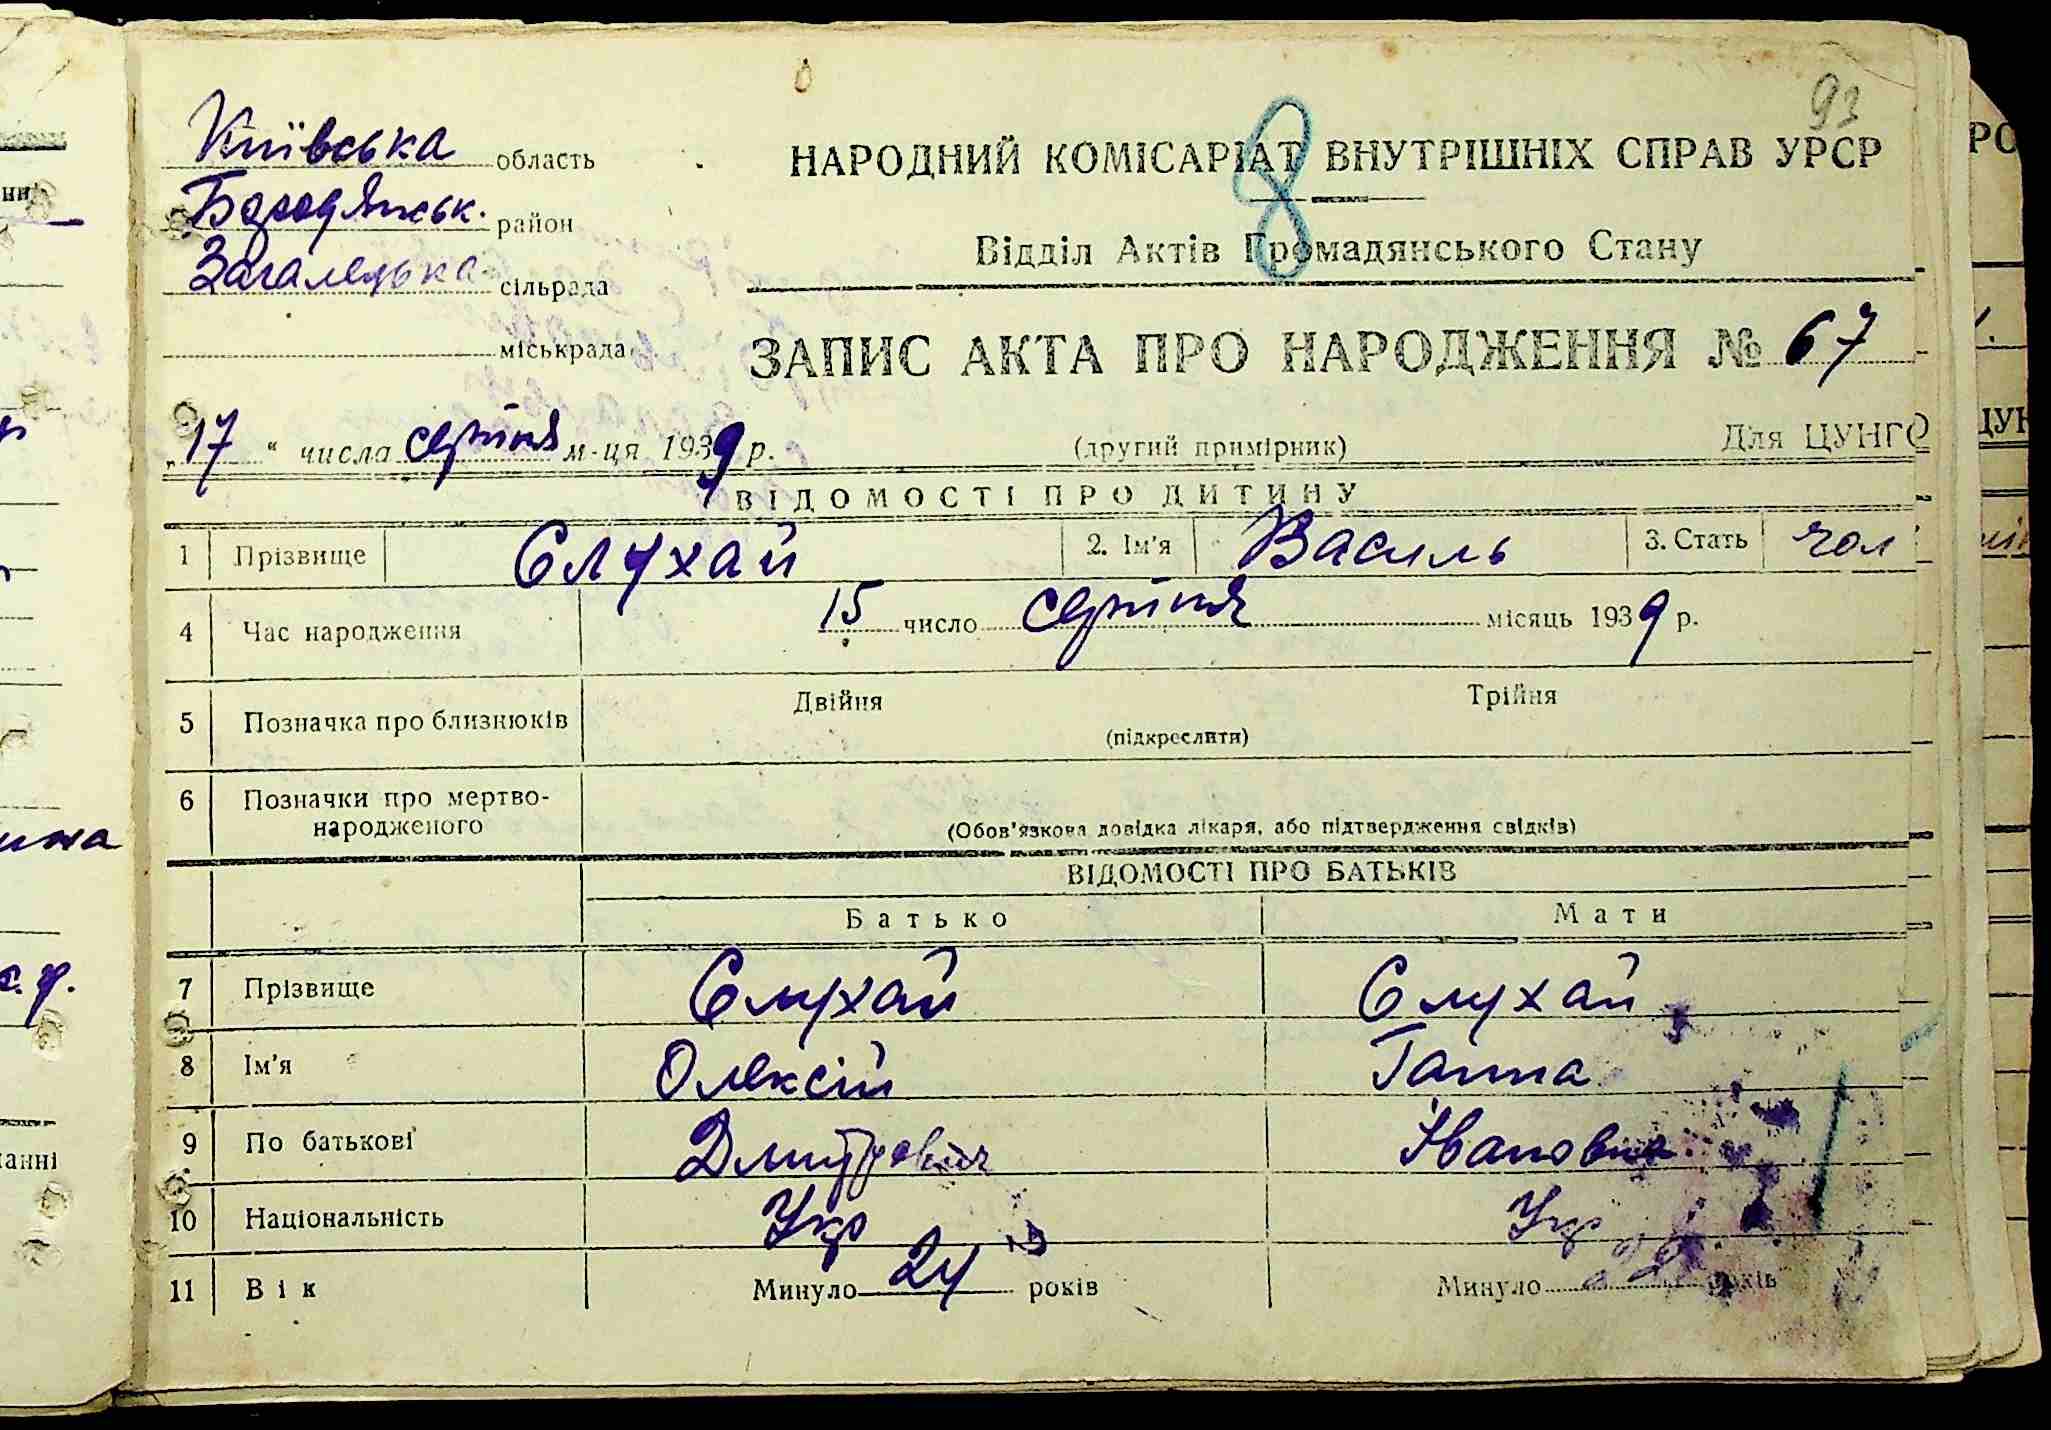 93
Київська область
НАРОДНИЙ КОМІСАРІАТ ВНУТРІШНІХ СПРАВ УРСР
8
Бородянськ. район
Відділ Актів Громадянського Стану
Загалецька сільрада
міськрада
ЗАПИС АКТА ПРО НАРОДЖЕННЯ № 67
„17“ числа серпня м-ця 1939 р. (другий примірник) Для ЦУНГО
ВІДОМОСТІ ПРО ДИТИНУ
1 Прізвище Слухай 2. Ім'я Василь 3. Стать чол
4 Час народження 15 число серпня місяць 1939 р.
5 Позначка про близнюків Двійня Трійня
(підкреслити)
6 Позначки про мертво-
народженого (Обов'язкова довідка лікаря, або підтвердження свідків)
ВІДОМОСТІ ПРО БАТЬКІВ
Батько Мати
7 Прізвище Слухай Слухай
8 Ім'я Олексій Ганна
9 По батькові Дмитрович Івановна
10 Національність Укр Укр
11 Вік Минуло 24 років Минуло 22 років